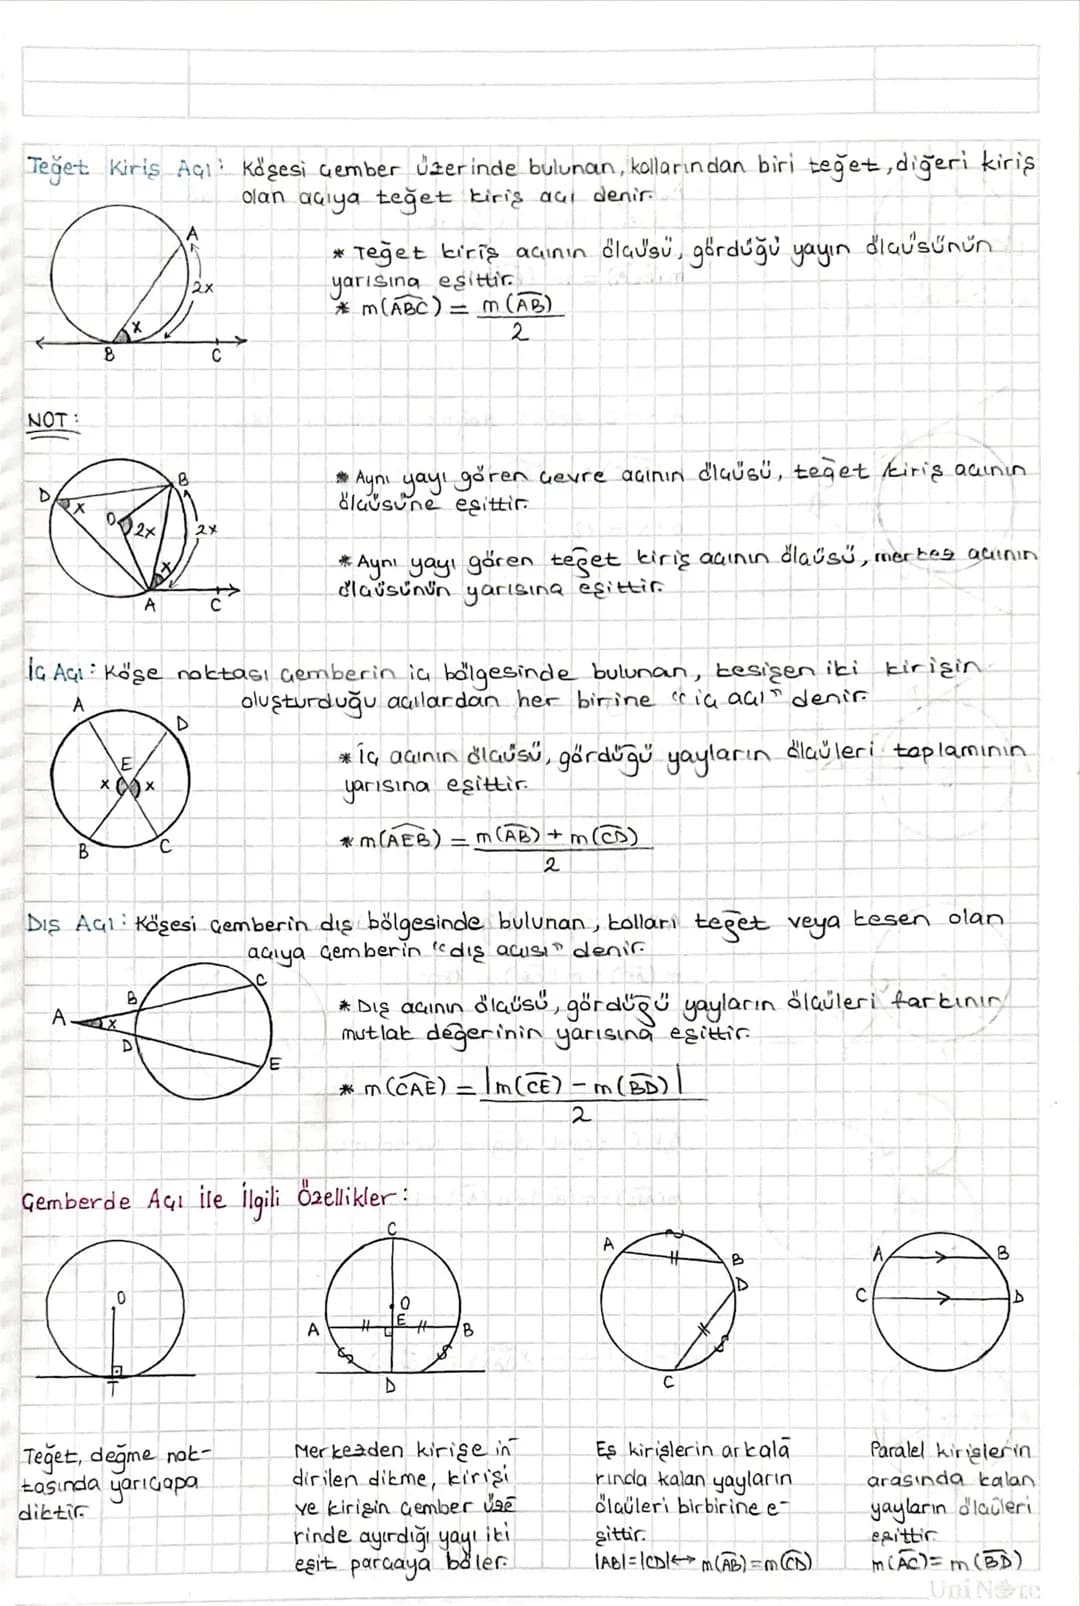 Teğet Kiriş Açı: Köşesi çember üzerinde bulunan, kollarından biri teğet, diğeri kiriş
olan açıya teğet kiriş açı denir.
A
2x
x
B
C
* Teğet kiriş açının ölçüsü, gördüğü yayın ölçüsünün
yarısına eşittir.
* m(ABC) = m(AB)
2
NOT:
D
x
B
O
2x
2x
x
A
C
* Aynı yayı gören çevre açının ölçüsü, teğet kiriş açının
ölçüsüne eşittir.
* Aynı yayı gören teğet kiriş açının ölçüsü, merkez açının
ölçüsünün yarısına eşittir.
İç Açı: Köşe noktası çemberin iç bölgesinde bulunan, kesişen iki kirişin
oluşturduğu açılardan her birine "iç açı" denir.
A
D
E
x
x
B
C
* İç açının ölçüsü, gördüğü yayların ölçüleri toplamının
yarısına eşittir.
* m(AEB) = m(AB) + m(CD)
2
Dış Açı: Köşesi çemberin dış bölgesinde bulunan, kolları teğet veya kesen olan
açıya çemberin "dış açısı" denir.
C
B
A
x
D
E
* Dış açının ölçüsü, gördüğü yayların ölçüleri farkının
mutlak değerinin yarısına eşittir.
* m(CAE) = |m(CE) - m(BD)|
2
Çemberde Açı ile İlgili Özellikler:
O
T
C
O
E
A
B
D
A
B
D
C
A
B
C
D
Teğet, değme nok-
tasında yarıçapa
diktir.
Merkezden kirişe in
dirilen dikme, kirişi
ve kirişin çember üze
rinde ayırdığı yayı iki
eşit parçaya böler.
Eş kirişlerin arkala
rında kalan yayların
ölçüleri birbirine e-
şittir.
|AB|=|CD|↔ m(AB)=m(CD)
Paralel kirişlerin
arasında kalan
yayların ölçüleri
eşittir.
m(AC)= m(BD)
UniNote